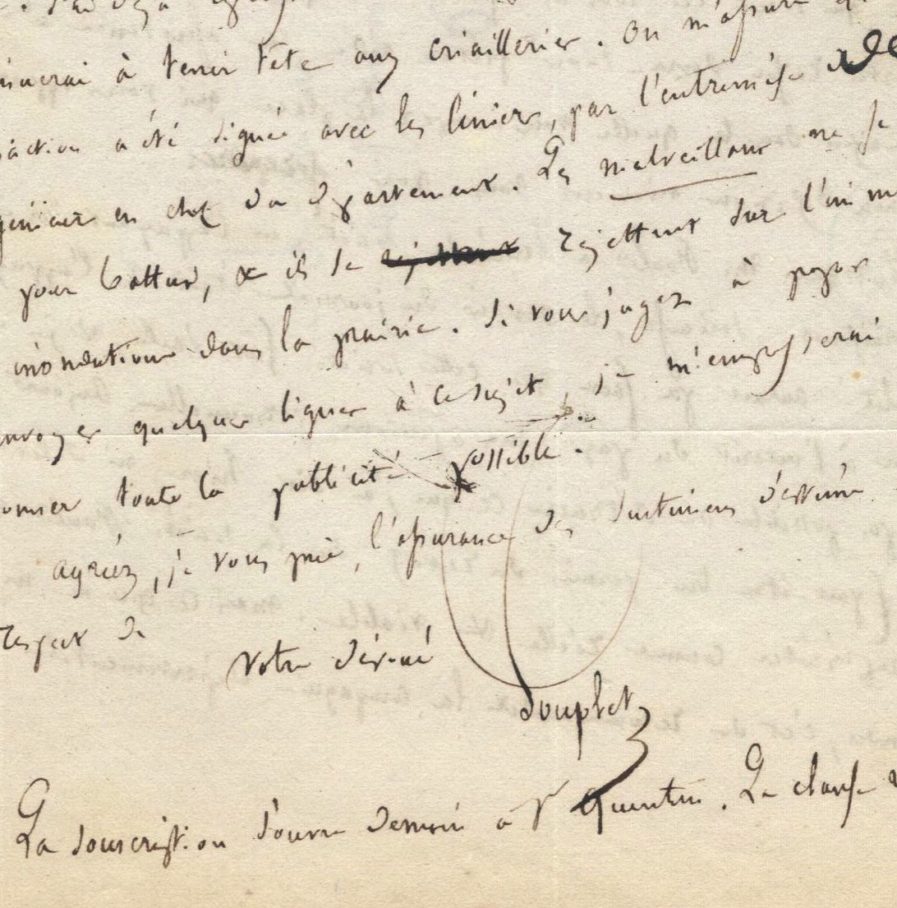 à tenir tête aux criailleries. On m'assure
a été signée avec les liniers, par l'entremise de
en chef du département. Les malveillans ne se
pour battus, & ils se rejettent sur l'
inondations dans la prairie. Si vous jugez à propos
envoyer quelques lignes à ce sujet, je m'empresserai
donner toute la publicité possible.
agréez, je vous prie, l'assurance des sentimens d'estime
respect de
votre dévoué
Souplet
La souscription s'ouvre demain à St Quentin. La classe